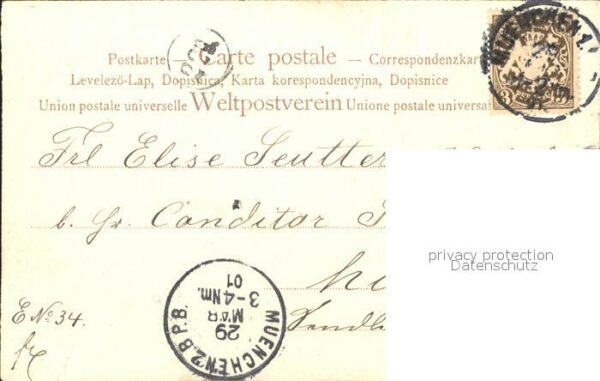 Postkarte — Carte postale — Correspondenzkar
Levelező-Lap, Dopisnica, Karta korespondencyjna, Dopisnice
Union postale universelle Weltpostverein Unione postale universa
MUENCHEN
3 3
Frl Elise Seutter
b. Hr. Conditor
privacy protection
Datenschutz
MUENCHEN 2 B.P.B.
29
MÄR
3-4 Nm.
01
E No. 34.